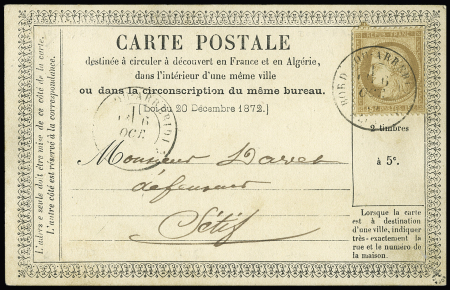 CARTE POSTALE
destinée à circuler à découvert en France et en Algérie,
dans l'intérieur d'une même ville
ou dans la circonscription du même bureau.
[Loi du 20 Décembre 1872.]
L'adresse seule doit être mise de ce côté de la carte.
L'autre côté est réservé à la correspondance.
6
OCT
REPUB FRANC
2 timbres
à 5c.
Monsieur
défenseur
Sétif
Lorsque la carte
est à destination
d'une ville, indiquer
très-exactement la
rue et le numéro de
la maison.